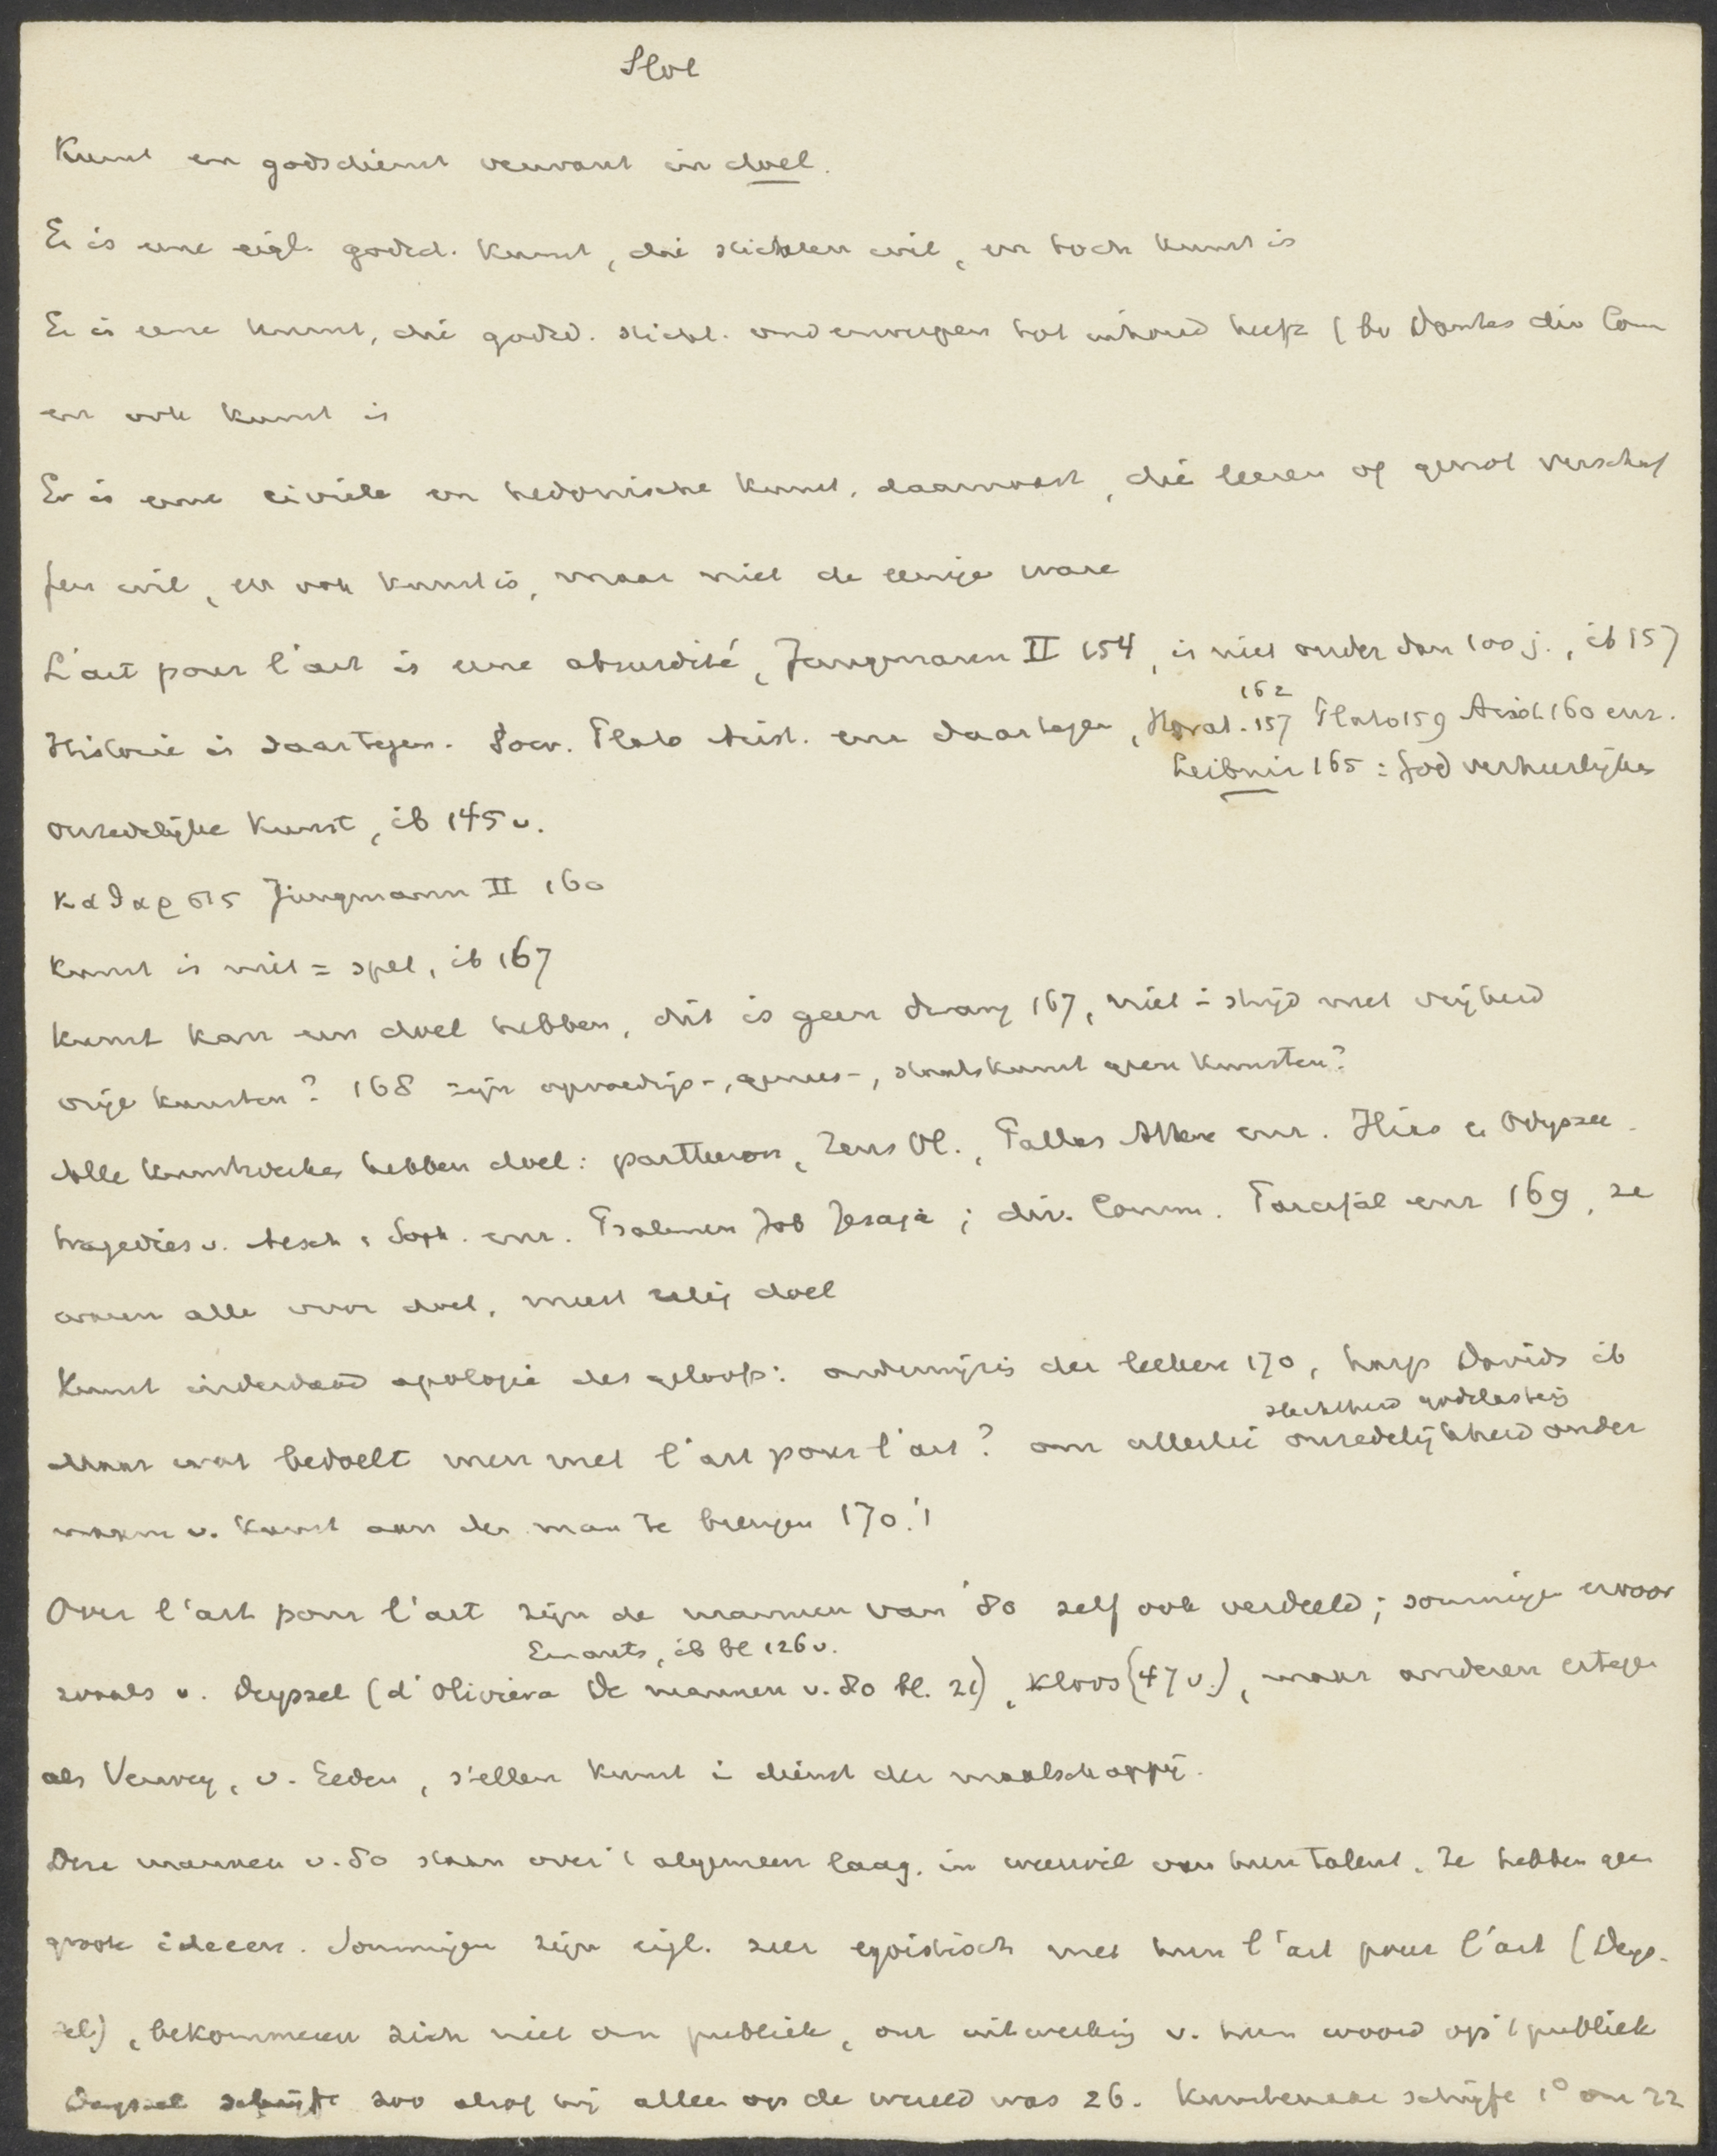 Slot
Kunst en godsdienst verwant in doel.
Er is eene eigl. godsd. kunst, die stichten wil, en toch kunst is
Er is eene kunst, die godsd. sticht. onderwerpen tot inhoud heeft (bv Dantes div Com
en ook kunst is
Er is eene civiele en hedonische kunst, daarnaast, die leeren of genot verschaf
fen wil, en ook kunst is, maar niet de eenige ware
L'art pour l'art is eene absurdité, Jungmann II 154, is niet ouder dan 100 j., ib 157
162
Historie is daartegen. Socr. Plato Arist. enz daartegen, Horat. 157 Plato 159 Arist 160 enz.
Leibniz 165 : God verheerlijken
onzedelijke kunst, ib 145 v.
καθαρσις Jungmann II 160
Kunst is niet = spel, ib 167
Kunst kan een doel hebben, dit is geen dwang 167, niet i strijd met vrijheid
vrije kunsten? 168 zijn opvoedings-, genees-, staatskunst geen kunsten?
Alle kunstwerken hebben doel: parthenon, Zeus Ol., Pallas Athene enz. Ilias en Odyssee
tragedies v. Aesch. Soph. enz. Psalmen Job Jesaja; div. Comm. Parcifal enz 169, ze
waren alle voor doel, meest relig doel
Kunst inderdaad apologie des geloofs: onderwijzeres der leeken 170, harp Davids ib
slechtheid godslastering
Maar wat bedoelt men met l'art pour l'art? om allerlei onzedelijkheid onder
naam v. kunst aan den man te brengen 170.!
Over l'art pour l'art zijn de mannen van '80 zelf ook verdeeld; sommigen ervoor
Emants, ib bl 126 v.
zooals v. Deyssel (d'Oliviera De mannen v. 80 bl. 21), Kloos (47 v.), maar anderen ertegen
als Verwey, v. Eeden, stellen kunst i dienst der maatschappij.
Deze mannen v. 80 staan over 't algemeen laag, in weerwil van hun talent. Ze hebben geen
groote ideeen. Sommigen zijn eigl. zeer egoistisch met hun l'art pour l'art (Deys-
sel), bekommeren zich niet om publiek, om uitwerking v. hun woord op 't publiek
Deyssel schrijft zoo alsof hij alleen op de wereld was 26. Kunstenaar schrijft 1° om 22